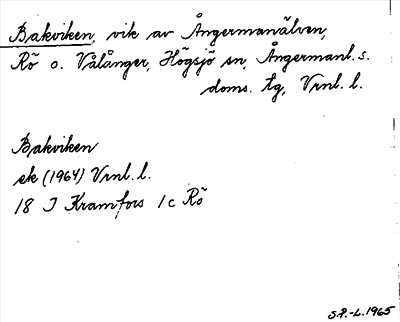 Bakviken, vik av Ångermanälven,
Rö o. Vålånger, Högsjö sn, Ångermanl. s.
doms. tg, Vrnl. l.
Bakviken
ek (1964) Vrnl. l.
18 J Kramfors 1 c Rö
S.P.-L. 1965